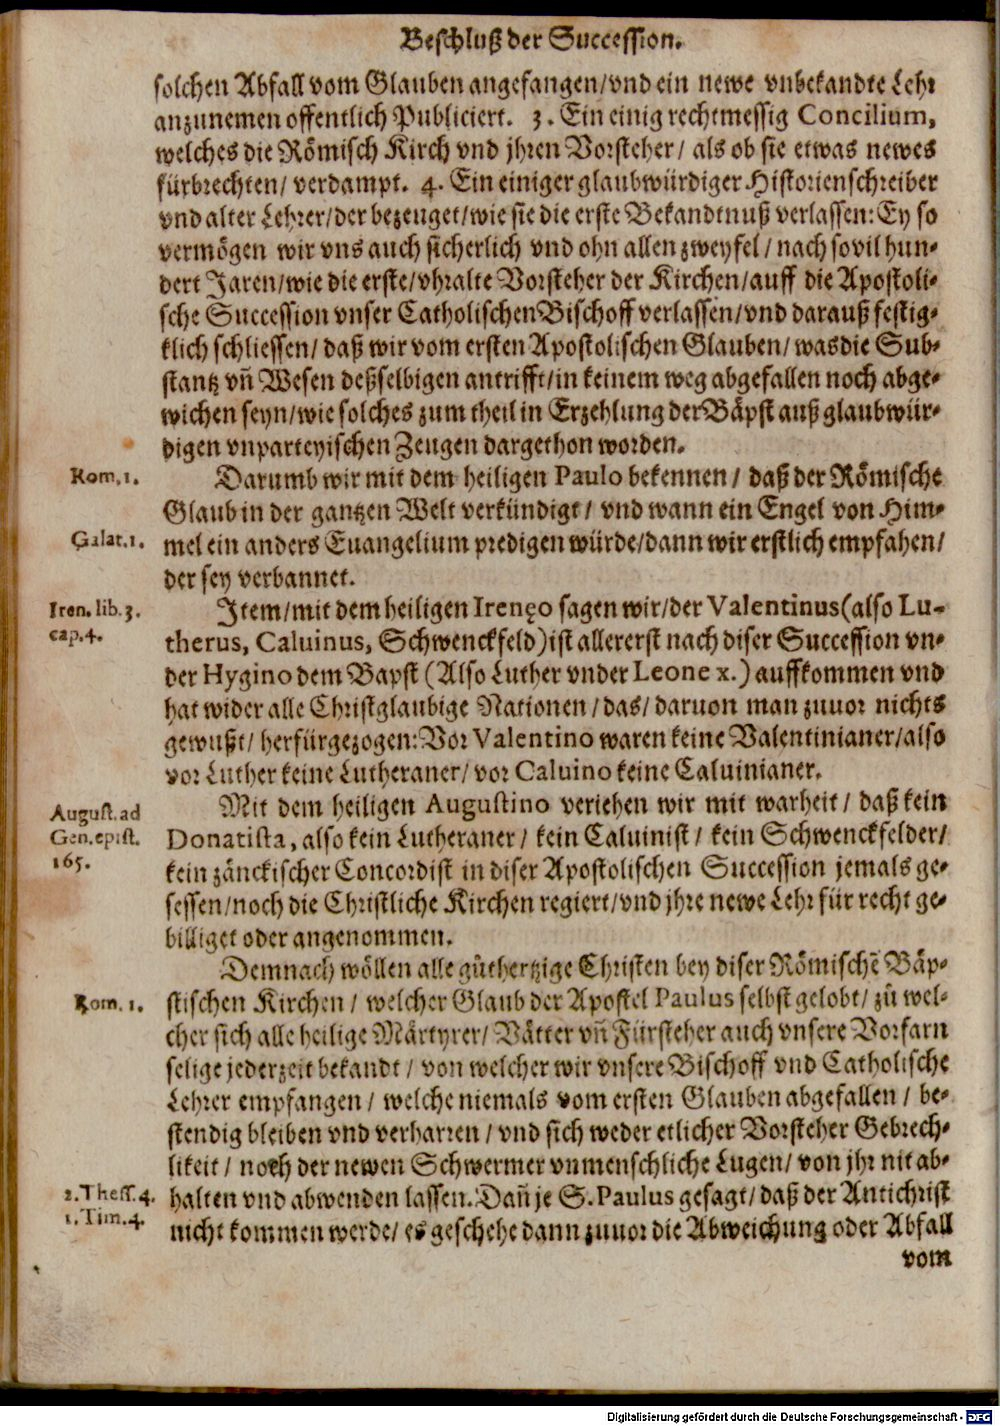 Beschluß der Succession.
solchen Abfall vom Glauben angefangen/vnd ein newe vnbekandte Lehr
anzunemen offentlich Publiciert. 3. Ein einig rechtmessig Concilium,
welches die Römisch Kirch vnd jhren Vorsteher/ als ob sie etwas newes
fürbrechten/ verdampt. 4. Ein einiger glaubwürdiger Historienschreiber
vnd alter Lehrer/der bezeuget/wie sie die erste Bekandtnuß verlassen: Ey so
vermögen wir vns auch sicherlich vnd ohn allen zweyfel/ nach sovil hun-
dert Jaren/wie die erste/vhralte Vorsteher der Kirchen/auff die Apostoli-
sche Succession vnser Catholischen Bischoff verlassen/vnd darauß festig-
klich schliessen/ daß wir vom ersten Apostolischen Glauben/ was die Sub-
stantz vñ Wesen deßselbigen antrifft/in keinem weg abgefallen noch abge-
wichen seyn/wie solches zum theil in Erzehlung der Bäpst auß glaubwür-
digen vnparteyischen Zeugen dargethon worden.
Rom. 1.
Darumb wir mit dem heiligen Paulo bekennen/ daß der Römische
Glaub in der gantzen Welt verkündigt/ vnd wann ein Engel von Him-
Galat. 1.
mel ein anders Euangelium predigen würde/dann wir erstlich empfahen/
der sey verbannet.
Iren. lib. 3.
cap. 4.
Item/mit dem heiligen Irenęo sagen wir/der Valentinus(also Lu-
therus, Caluinus, Schwenckfeld)ist allererst nach diser Succession vn-
der Hygino dem Bapst (Also Luther vnder Leone x.) auffkommen vnd
hat wider alle Christglaubige Nationen/das/daruon man zuuor nichts
gewußt/ herfürgezogen: Vor Valentino waren keine Valentinianer/also
vor Luther keine Lutheraner/ vor Caluino keine Caluinianer.
August. ad
Gen. epist.
165.
Mit dem heiligen Augustino veriehen wir mit warheit/ daß kein
Donatista, also kein Lutheraner/ kein Caluinist/ kein Schwenckfelder/
kein zänckischer Concordist in diser Apostolischen Succession jemals ge-
sessen/noch die Christliche Kirchen regiert/vnd jhre newe Lehr für recht ge-
billiget oder angenommen.
Demnach wöllen alle gůthertzige Christen bey diser Römischē Bäp-
Rom. 1.
stischen Kirchen/ welcher Glaub der Apostel Paulus selbst gelobt/ zů wel-
cher sich alle heilige Märtyrer/ Vätter vñ Fürsteher auch vnsere Vorfarn
selige jederzeit bekandt/ von welcher wir vnsere Bischoff vnd Catholische
Lehrer empfangen/ welche niemals vom ersten Glauben abgefallen/ be-
stendig bleiben vnd verharren/ vnd sich weder etlicher Vorsteher Gebrech-
likeit/ noch der newen Schwermer vnmenschliche Lugen/ von jhr nit ab-
2. Thess. 4.
1. Tim. 4.
halten vnd abwenden lassen. Dañ je S. Paulus gesagt/ daß der Antichrist
nicht kommen werde/ es geschehe dann zuuor die Abweichung oder Abfall
vom
Digitalisierung gefördert durch die Deutsche Forschungsgemeinschaft - DFG